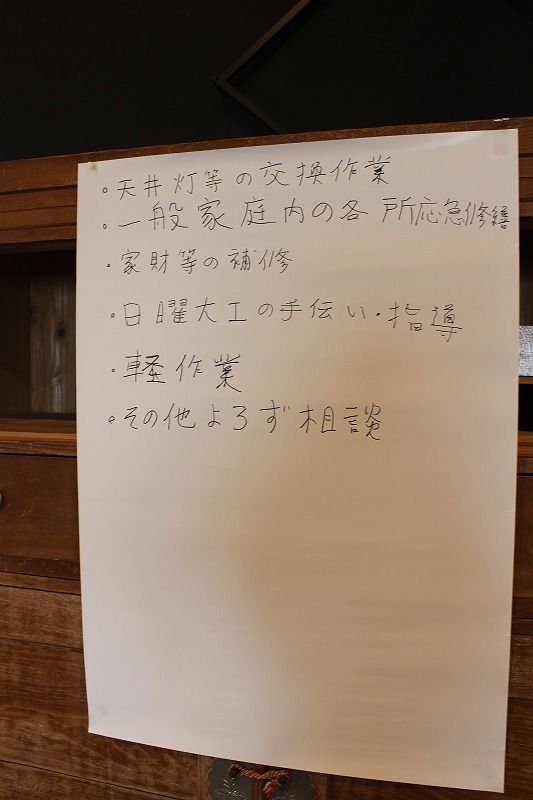 ・天井灯等の交換作業
・一般家庭内の各所応急修繕
・家財等の補修
・日曜大工の手伝い・指導
・軽作業
・その他よろず相談